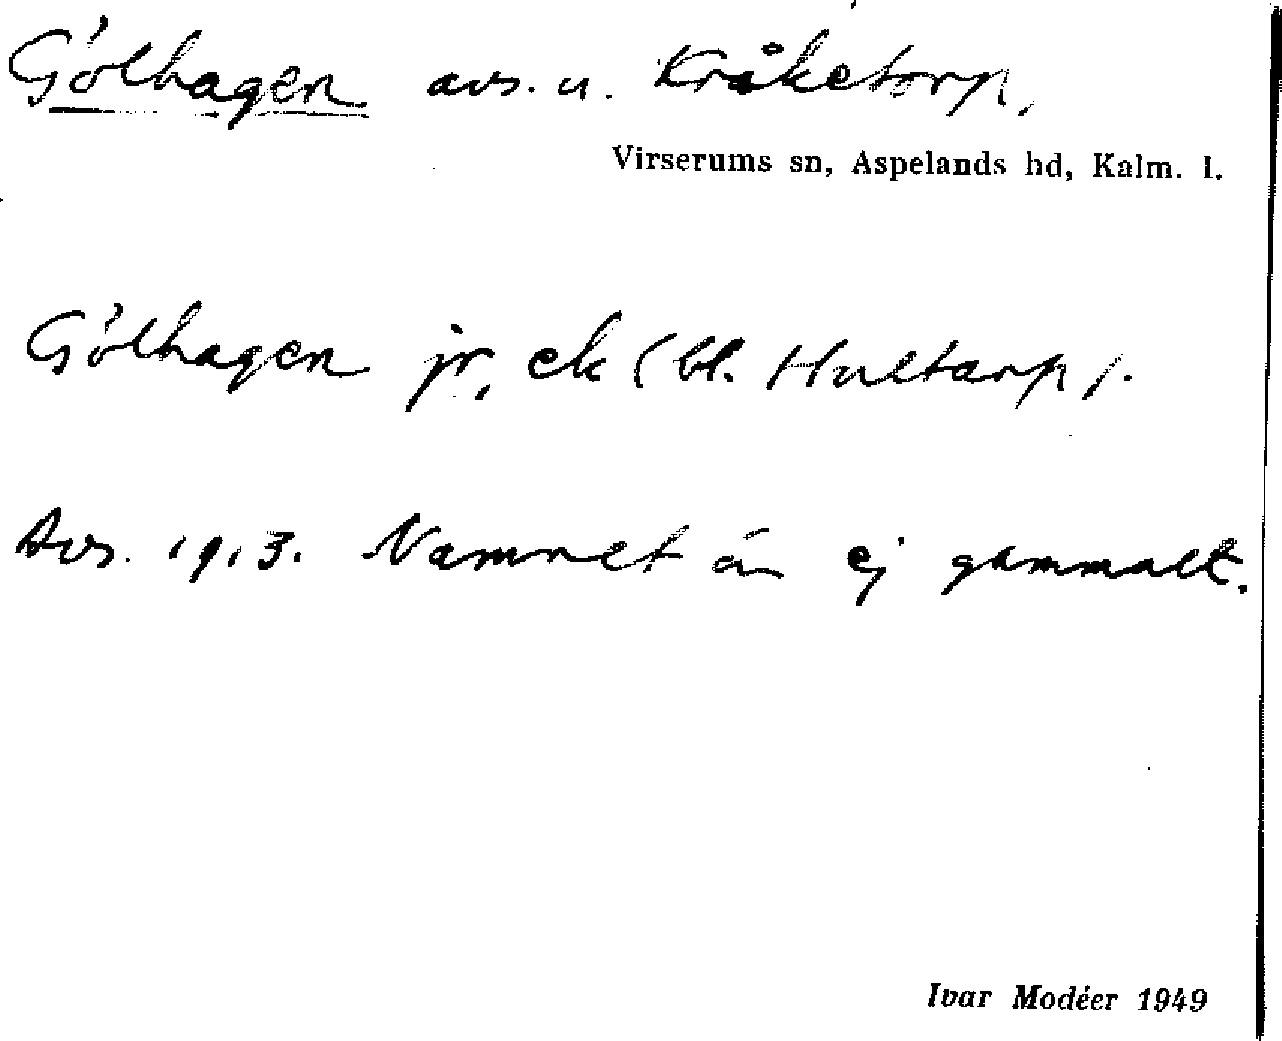 Gölhagen avs. u. Kråketorp.
Virserums sn, Aspelands hd, Kalm. l.
Gölhagen jr, ek (bl. Hultarp).
Avs. 1913. Namnet är ej gammalt.
Ivar Modéer 1949